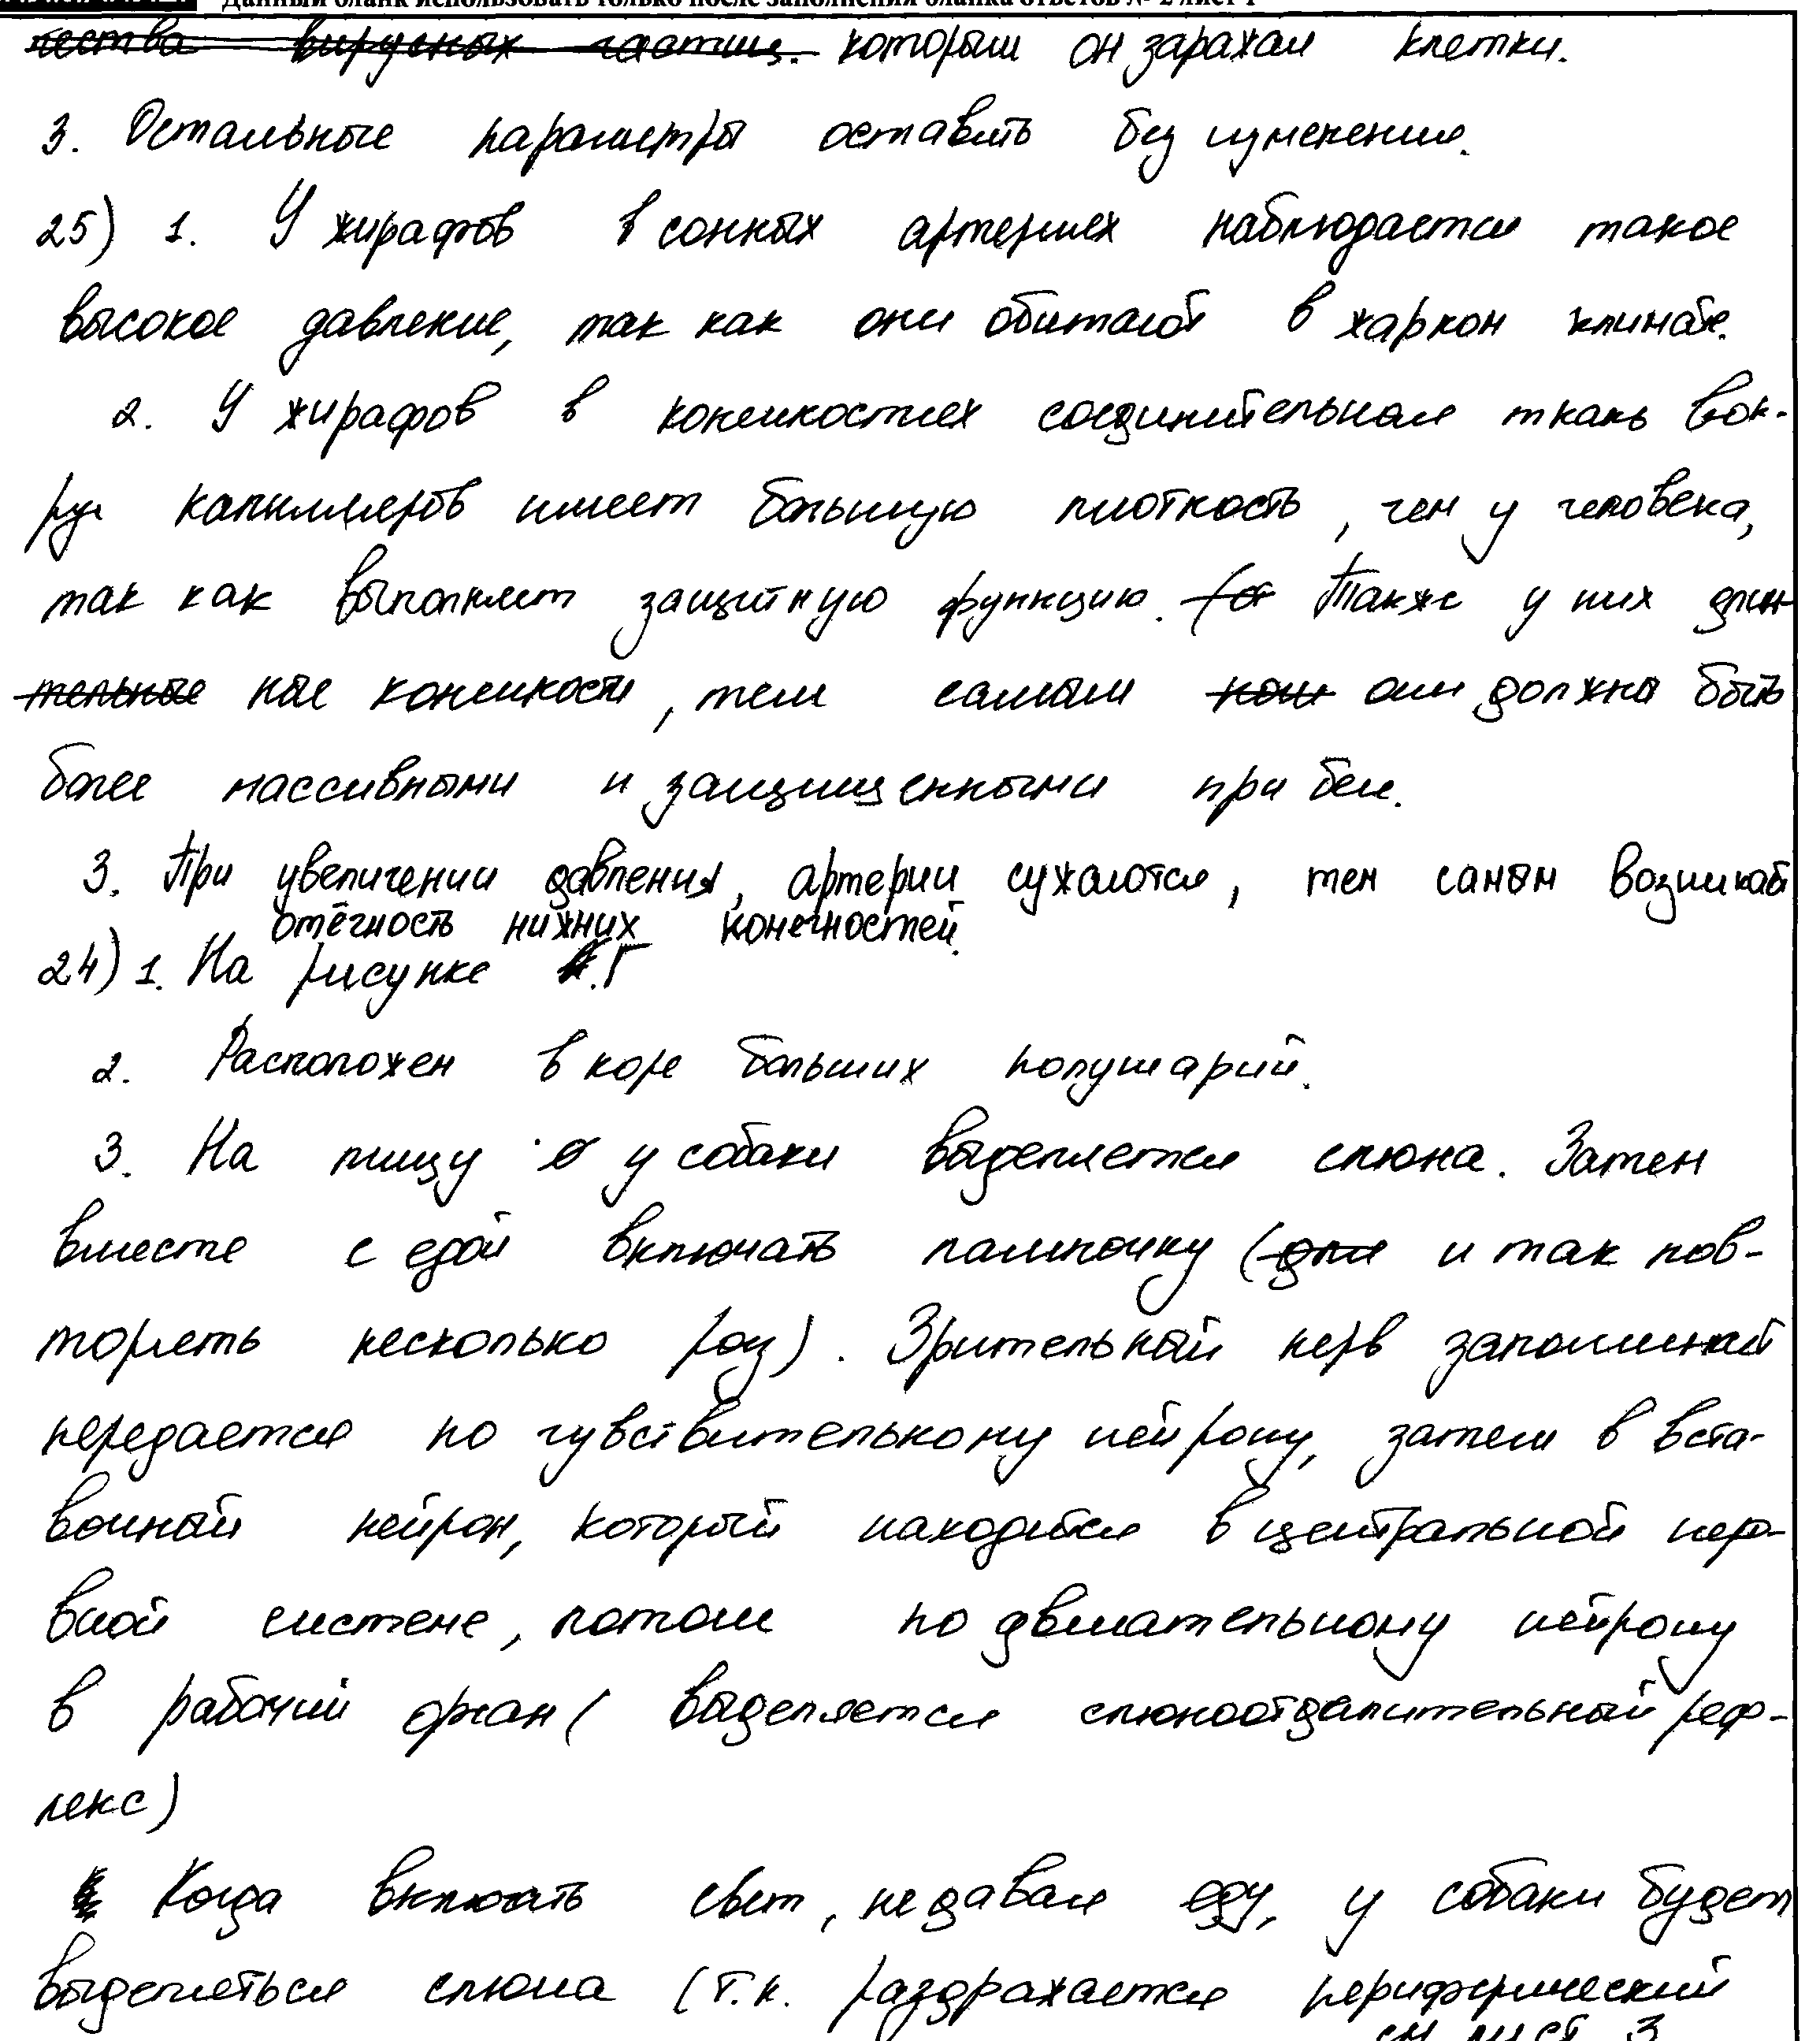 Данный бланк использовать только после заполнения бланка ответов № 2 лист 1
чества вирусных частиц. которым он заражал клетки.
3. Остальные параметры оставить без изменения.
25) 1. У жирафов в сонных артериях наблюдается такое
высокое давление, так как они обитают в жарком климате.
2. У жирафов в конечностях соединительная ткань вок-
руг капилляров имеет большую плотность, чем у человека,
так как выполняет защитную функцию. Также у них длин
тельные ные конечности, тем самым они должны быть
более массивными и защищенными при беге.
3. При увеличении давления, артерии сужаются, тем самым возникает
отёчность нижних конечностей.
24) 1. На рисунке Г
2. Расположен в коре больших полушарий.
3. На пищу у собаки выделяется слюна. Затем
вместе с едой включать лампочку (для и так пов-
торять несколько раз). Зрительный нерв запоминает
передается по чувствительному нейрону, затем в вста-
вочный нейрон, который находится в центральной нер-
вной системе, потом по двигательному нейрону
в рабочий орган ( выделяется слюноотделительный реф-
лекс)
Когда включать свет, не давая еду, у собаки будет
выделяться слюна (т.к. раздражается периферический
см лист 3